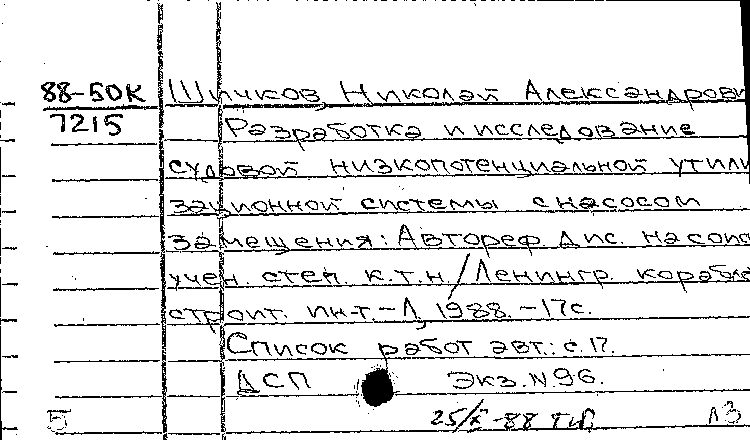 88-50К Шичков Николай Александрови
7215 Разработка и исследование
судовой низкопотенциальной утили
зационной системы с насосом
замещения: Автореф. дис. на соис
учен. степ. к.т.н./Ленингр. корабле
строит. ин-т. - Л, 1988. - 17с.
Список работ авт.: с.17.
ДСП Экз. N 96.
5 25/X-88 ЛЗ